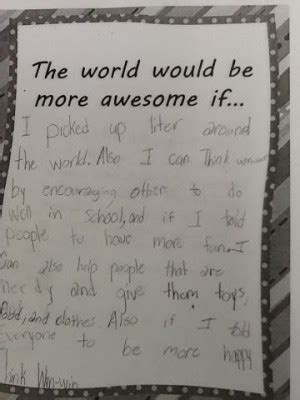 The world would be
more awesome if...
I picked up liter around
the world. Also I can Think win-win
by encouraging other to do
well in school, and if I told
people to have more fun. I
can also help people that are
needy and give them toys,
food, and clothes. Also if I told
everyone to be more happy
Think Win-win